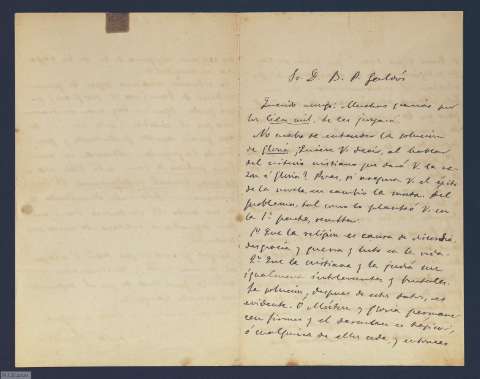 Sr. D. B. P. Galdós
Querido amigo: Muchas gracias por
los cien mil. Se les juzgará.
No acabo de entender la solución
de Gloria. ¿Quiere V. decir, al hablar
del criterio cristiano que dará V. la ra-
zon á Gloria? Pues, si asegura V. el éxito
de la novela, en cambio la mata. Del
problema, tal como lo planteó V. en
la 1ª parte, resulta:
1º Que la religion es causa de discordia,
desgracia y guerra y luto en la vida.
2º Que la cristiana y la judía son
igualmente intolerantes y brutales.
La solución, despues de estos datos, es
evidente. Ó Morton y Gloria permane-
cen firmes y el desenlace es trágico,
ó cualquiera de ellos cede, y entonces